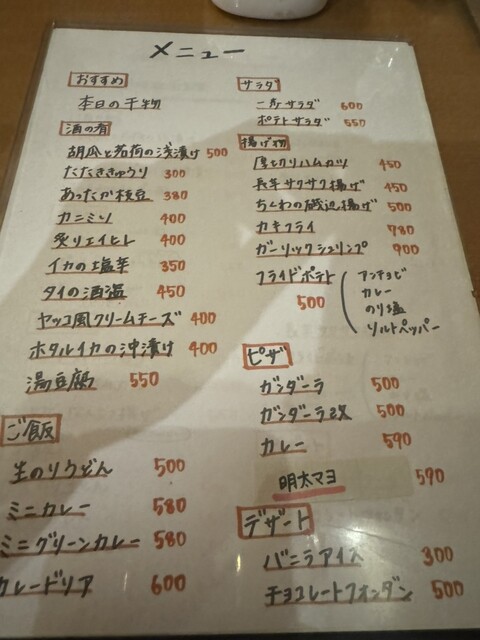 メニュー
おすすめ
本日の干物
酒の肴
胡瓜と茗荷の浅漬け 500
たたききゅうり 300
あったか枝豆 380
カニミソ 400
炙りエイヒレ 400
イカの塩辛 350
タイの酒盗 450
ヤッコ風クリームチーズ 400
ホタルイカの沖漬け 400
湯豆腐 550
ご飯
生のりうどん 500
ミニカレー 580
ミニグリーンカレー 580
カレードリア 600
サラダ
サラダ 600
ポテトサラダ 550
揚げ物
厚切りハムカツ 450
長芋サクサク揚げ 450
ちくわの磯辺揚げ 500
カキフライ 780
ガーリックシュリンプ 900
フライドポテト 500
アンチョビ
カレー
のり塩
ソルトペッパー
ピザ
ガンダーラ 500
ガンダーラ改 500
カレー 590
明太マヨ 590
デザート
バニラアイス 300
チョコレートフォンダン 500